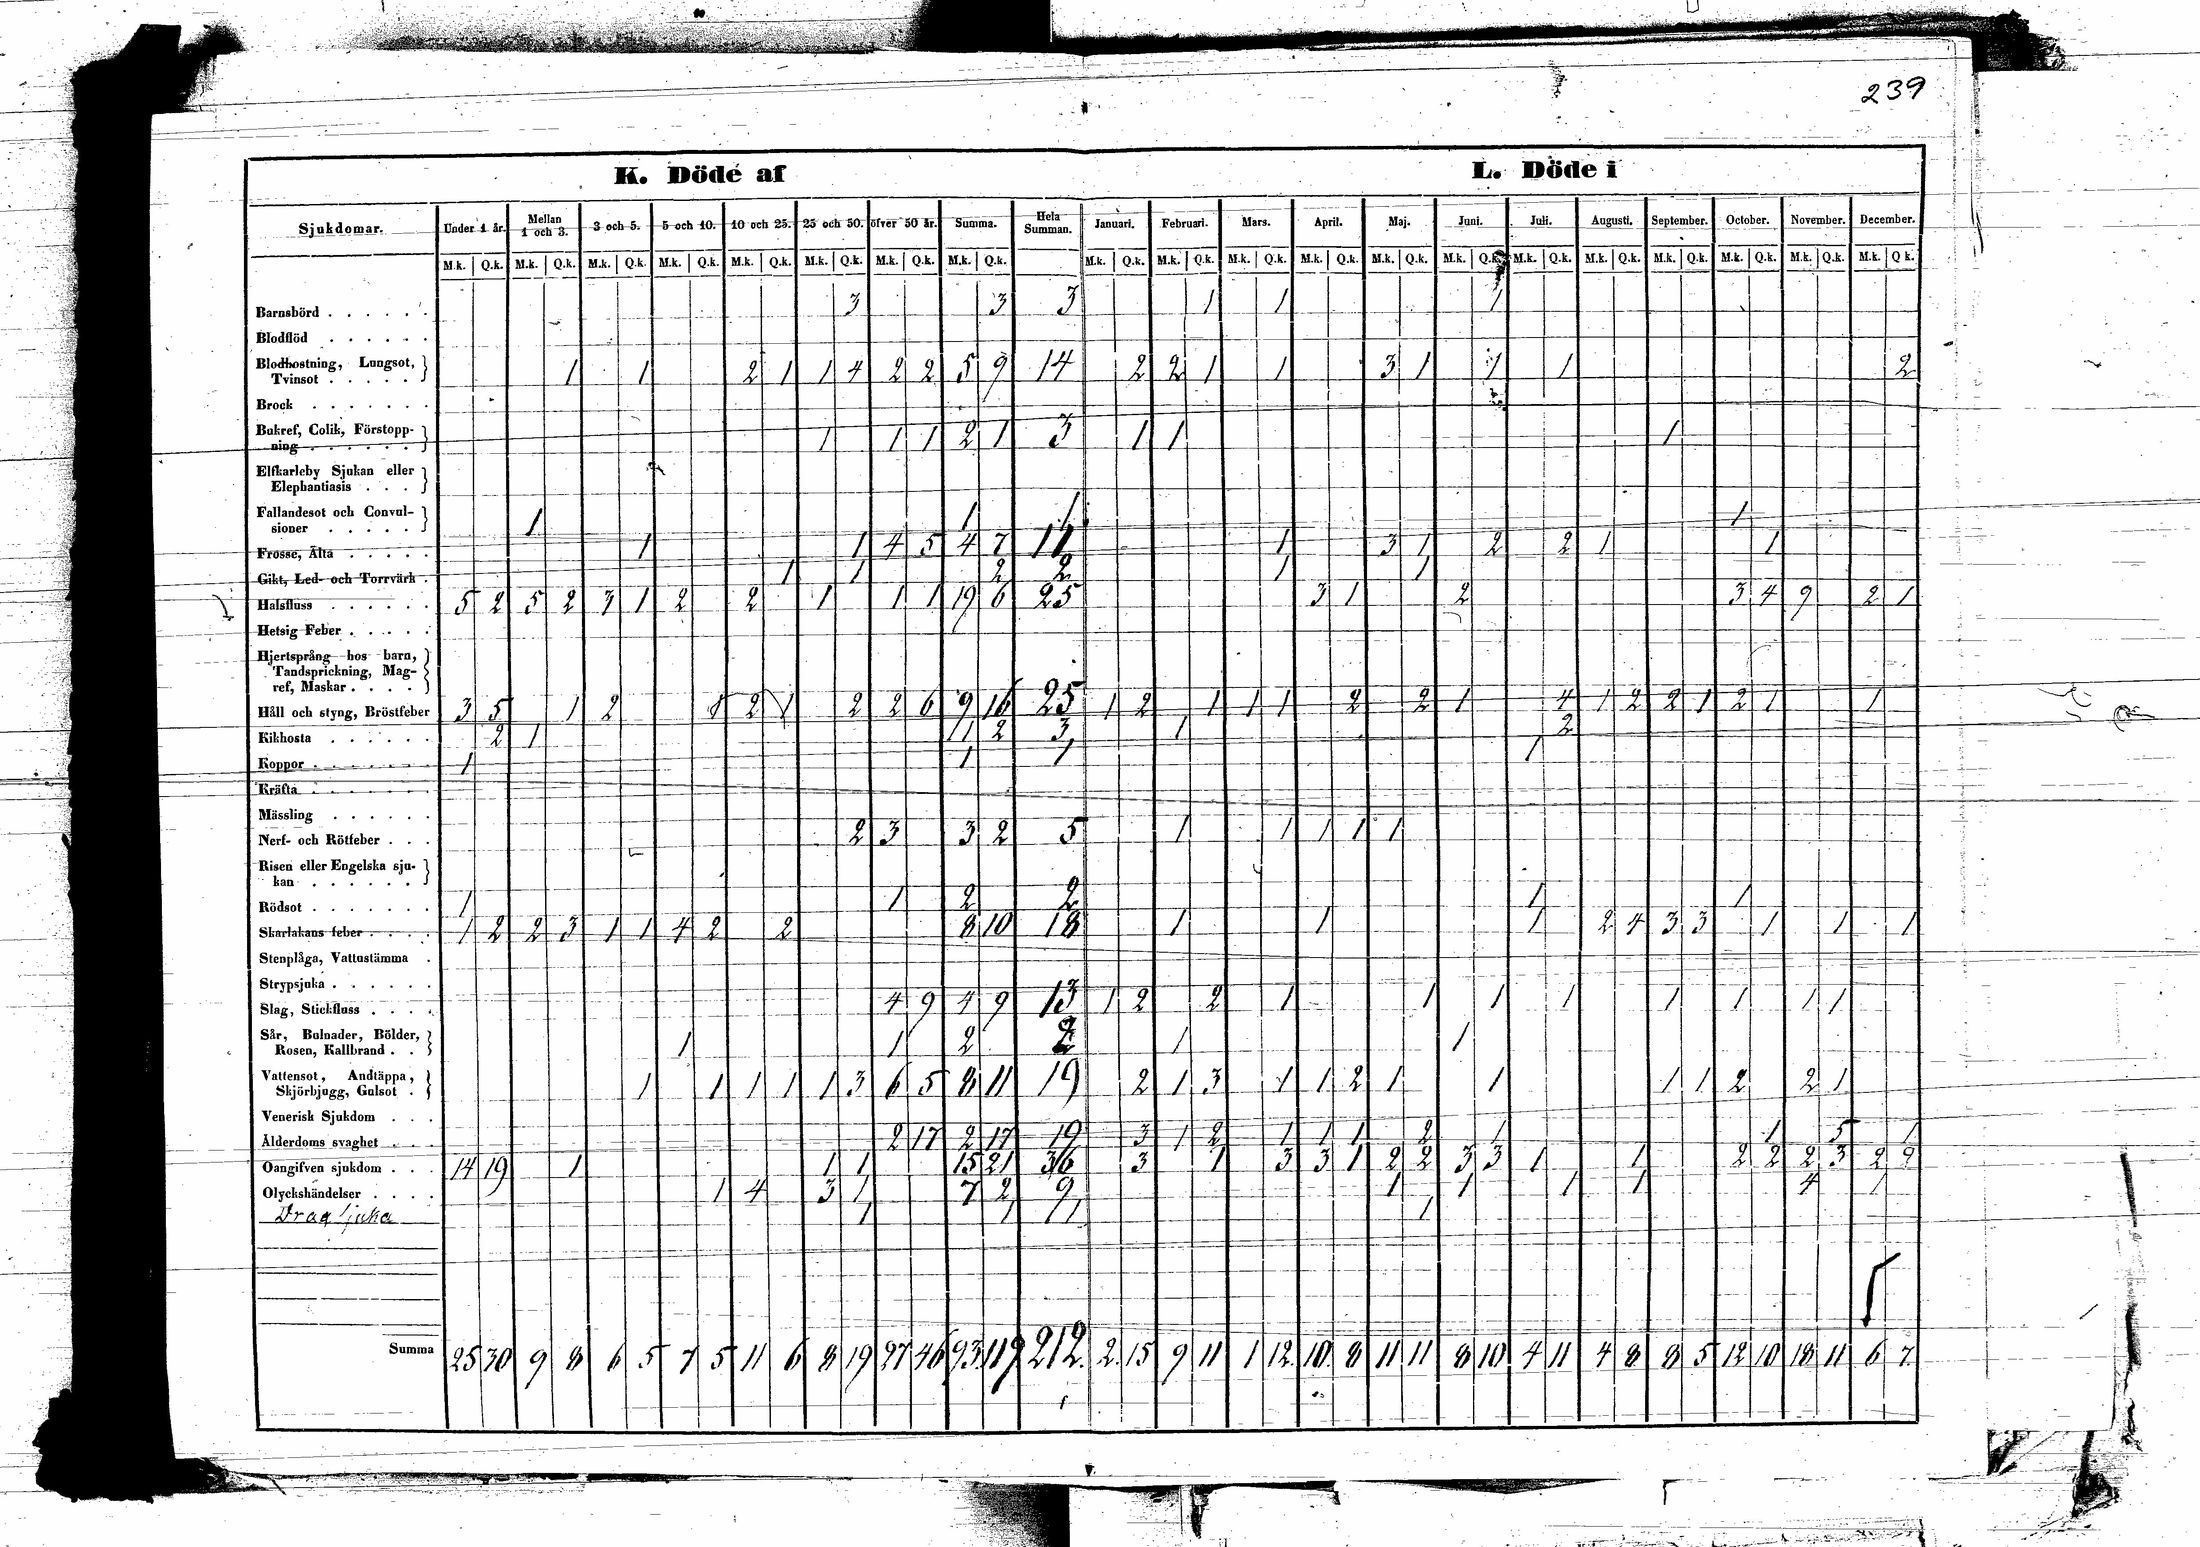 239
K. Döde af L. Döde i
Sjukdomar. Under 1 år. Mellan 1 och 3. 3 och 5. 5 och 10. 10 och 25. 25 och 50. öfver 50 år. Summa. Hela Summan. Januari. Februari. Mars. April. Maj. Juni. Juli. Augusti. September. October. November. December.
M.k. Q.k. M.k. Q.k. M.k. Q.k. M.k. Q.k. M.k. Q.k. M.k. Q.k. M.k. Q.k. M.k. Q.k. M.k. Q.k. M.k. Q.k. M.k. Q.k. M.k. Q.k. M.k. Q.k. M.k. Q.k. M.k. Q.k. M.k. Q.k. M.k. Q.k. M.k. Q.k. M.k. Q.k. M.k. Q k.
Barnsbörd 3 3 3 1 1 1
Blodflöd
Blodhostning, Lungsot,
Tvinsot 1 1 2 1 1 4 2 2 5 9 14 2 2 1 1 3 1 1 1 2
Brock
Bukref, Colik, Förstopp-
ning 1 1 1 2 1 3 1 1 1
Elfkarleby Sjukan eller
Elephantiasis
Fallandesot och Convul-
sioner 1 1 1 1
Frosse, Älta 1 1 4 5 4 7 11 1 3 1 2 2 1 1
Gikt, Led- och Torrvärk 1 1 2 2 1 1
Halsfluss 5 2 5 2 3 1 2 2 1 1 1 19 6 25 3 1 2 3 4 9 2 1
Hetsig Feber
Hjertsprång hos barn,
Tandsprickning, Mag-
ref, Maskar
Håll och styng, Bröstfeber 3 5 1 2 1 2 1 2 2 6 9 16 25 1 2 1 1 1 2 2 1 4 1 2 2 1 2 1 1
Kikhosta 2 1 1 2 3 1 2
Koppor 1 1 1 1
Kräfta
Mässling
Nerf- och Rötfeber 2 3 3 2 5 1 1 1 1 1
Risen eller Engelska sju-
kan
Rödsot 1 1 2 2 1 1
Skarlakans feber 1 2 2 3 1 1 4 2 2 8 10 18 1 1 1 2 4 3 3 1 1 1
Stenplåga, Vattustämma
Strypsjuka
Slag, Stickfluss 4 9 4 9 13 1 2 2 1 1 1 1 1 1 1 1
Sår, Bulnader, Bölder,
Rosen, Kallbrand 1 1 2 2 1 1
Vattensot, Andtäppa,
Skjörbjugg, Gulsot 1 1 1 1 1 3 6 5 8 11 19 2 1 3 1 1 2 1 1 1 1 2 2 1
Venerisk Sjukdom
Ålderdoms svaghet 2 17 2 17 19 3 1 2 1 1 1 2 1 1 5 1
Oangifven sjukdom 14 19 1 1 1 15 21 36 3 1 3 3 1 2 2 3 3 1 1 2 2 2 3 2 2
Olyckshändelser 1 4 3 1 7 2 9 1 1 1 1 4 1
Dragsjuka 1 1 1 1
Summa 25 30 9 8 6 5 7 5 11 6 8 19 27 46 93 119 212. 2. 15 9 11 1 12. 10. 8 11 11 8 10 4 11 4 8 8 5 12 10 18 11 6 7.